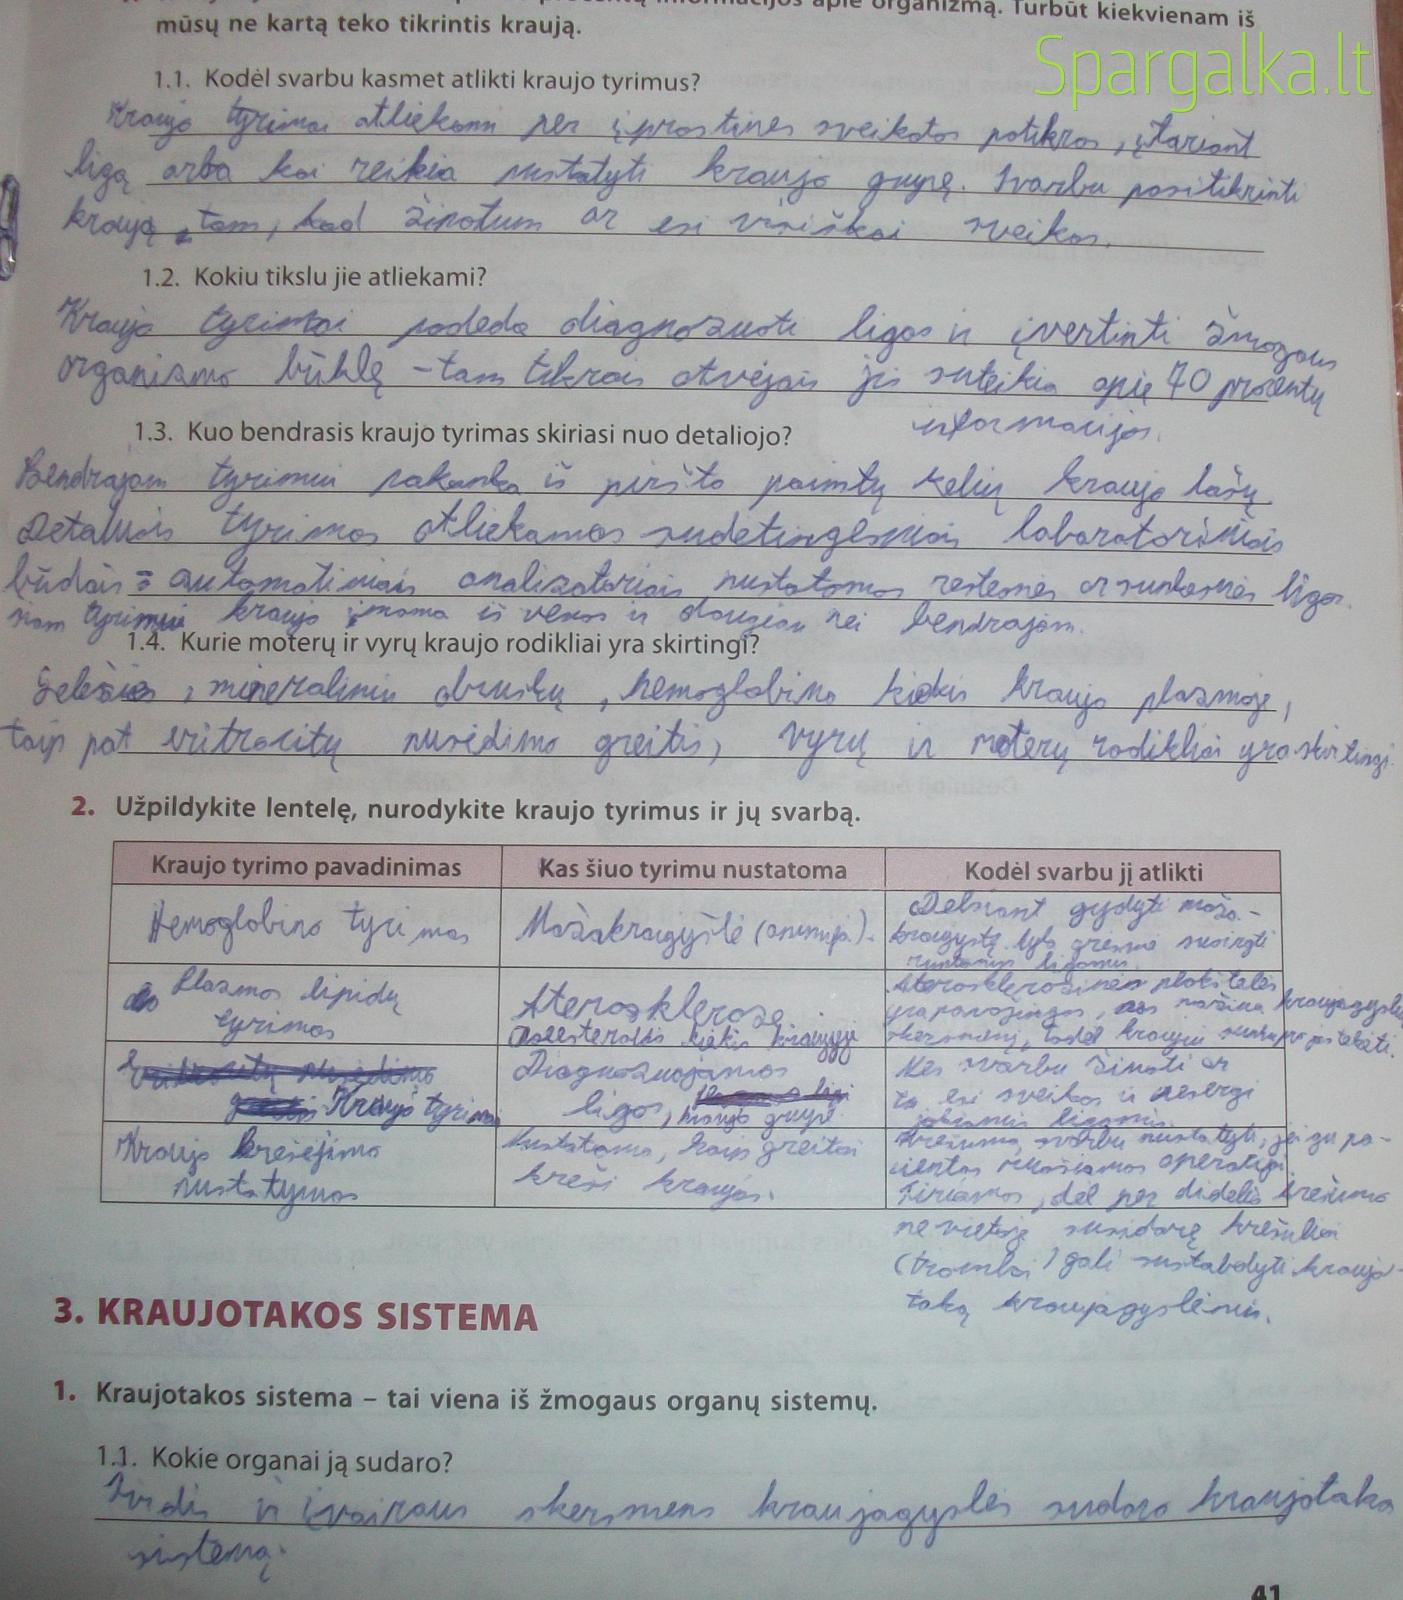 informacijos apie organizmą. Turbūt kiekvienam iš
mūsų ne kartą teko tikrintis kraują.
Spargalka.lt
1.1. Kodėl svarbu kasmet atlikti kraujo tyrimus?
Kraujo tyrimai atliekami per įprastines sveikatos patikras, įtariant
ligą arba kai reikia nustatyti kraujo grupę. Svarbu pasitikrinti
kraują tam, kad žinotum ar esi visiškai sveikas.
1.2. Kokiu tikslu jie atliekami?
Kraujo tyrimai padeda diagnozuoti ligas ir įvertinti žmogaus
organizmo būklę - tam tikrais atvejais jis suteikia apie 70 procentų
informacijos.
1.3. Kuo bendrasis kraujo tyrimas skiriasi nuo detaliojo?
Bendrajam tyrimui pakanka iš piršto paimtų kelių kraujo lašų.
Detalusis tyrimas atliekamas sudetingesniais laboratoriniais
būdais = automatiniais analizatoriais nustatomos retesnės ar sunkesnės ligos.
siam tyrimui kraujo imama iš venos ir daugiau nei bendrajam.
1.4. Kurie moterų ir vyrų kraujo rodikliai yra skirtingi?
Geležies, mineralinių druskų, hemoglobino kiekis kraujo plazmoje,
taip pat eritrocitų nusėdimo greitis, vyrų ir moterų rodikliai yra skirtingi.
2. Užpildykite lentelę, nurodykite kraujo tyrimus ir jų svarbą.
Kraujo tyrimo pavadinimas Kas šiuo tyrimu nustatoma Kodėl svarbu jį atlikti
Hemoglobino tyrimas Mažakraujystė (anemija). Delsiant gydyti maža-
kraujystę kyla grėsmė susirgti
ligomis.
Plazmos lipidų
tyrimas
Aterosklerozę
kiekis kraujyje
Aterosklerozinės plokštelės
yra pavojingos, nes mažina kraujagyslių
skersmenį, todėl kraujui sunku pratekėti.
Kraujo tyrimas
Diagnozuojamos
ligos, kraujo grupė.
Nes svarbu žinoti ar
tu esi sveikas ir nesergi
jokiomis ligomis.
Kraujo krešėjimo
nustatymas
Nustatoma, kaip greitai
kreši kraujas.
Krešumą svarbu nustatyti, jeigu pa-
cientas ruošiamas operacijai.
Tiriamas, dėl per didelio krešumo
ne vietoje susidarę krešuliai
(trombai) gali sustabdyti kraujo-
taką kraujagyslėmis.
3. KRAUJOTAKOS SISTEMA
1. Kraujotakos sistema – tai viena iš žmogaus organų sistemų.
1.1. Kokie organai ją sudaro?
Širdis ir įvairaus skersmens kraujagyslės sudaro kraujotakos
sistemą.
41